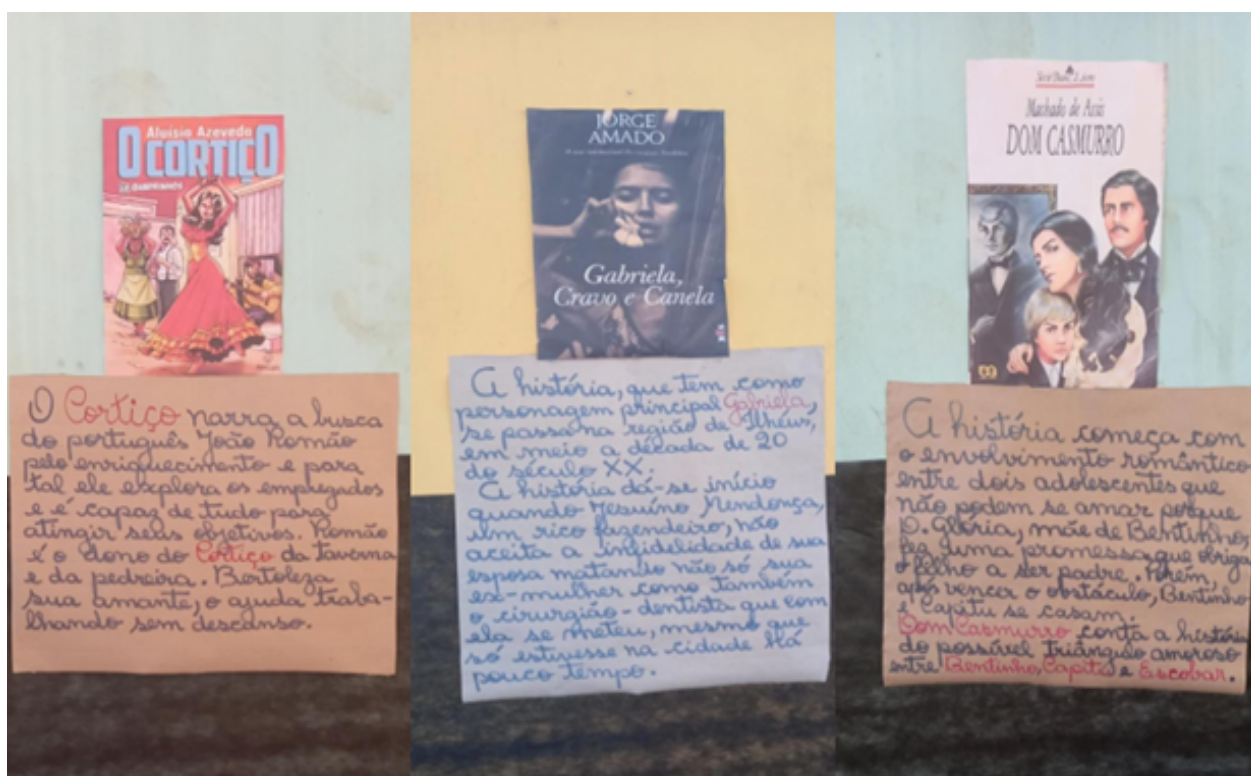 Aluísio Azevedo
O CORTIÇO
O Cortiço narra a busca
do português João Romão
pelo enriquecimento e para
tal ele explora os empregados
e é capaz de tudo para
atingir seus objetivos. Romão
é o dono do Cortiço da taverna
e da pedreira. Bertoleza
sua amante, o ajuda traba-
lhando sem descanso.
JORGE
AMADO
Gabriela,
Cravo e Canela
A história, que tem como
personagem principal Gabriela,
se passa na região de Ilhéus,
em meio a década de 20
do século XX.
A história dá-se início
quando Jesuíno Mendonça,
um rico fazendeiro, não
aceita a infidelidade de sua
esposa matando não só sua
ex-mulher como também
o cirurgião-dentista que com
ela se meteu, mesmo que
só estivesse na cidade há
pouco tempo.
Machado de Assis
DOM CASMURRO
A história começa com
o envolvimento romântico
entre dois adolescentes que
não podem se amar porque
D. Glória, mãe de Bentinho,
fez uma promessa que obriga
o filho a ser padre. Porém,
após vencer o obstáculo, Bentinho
e Capitu se casam.
Dom Casmurro conta a história
do possível triângulo amoroso
entre Bentinho, Capitu e Escobar.